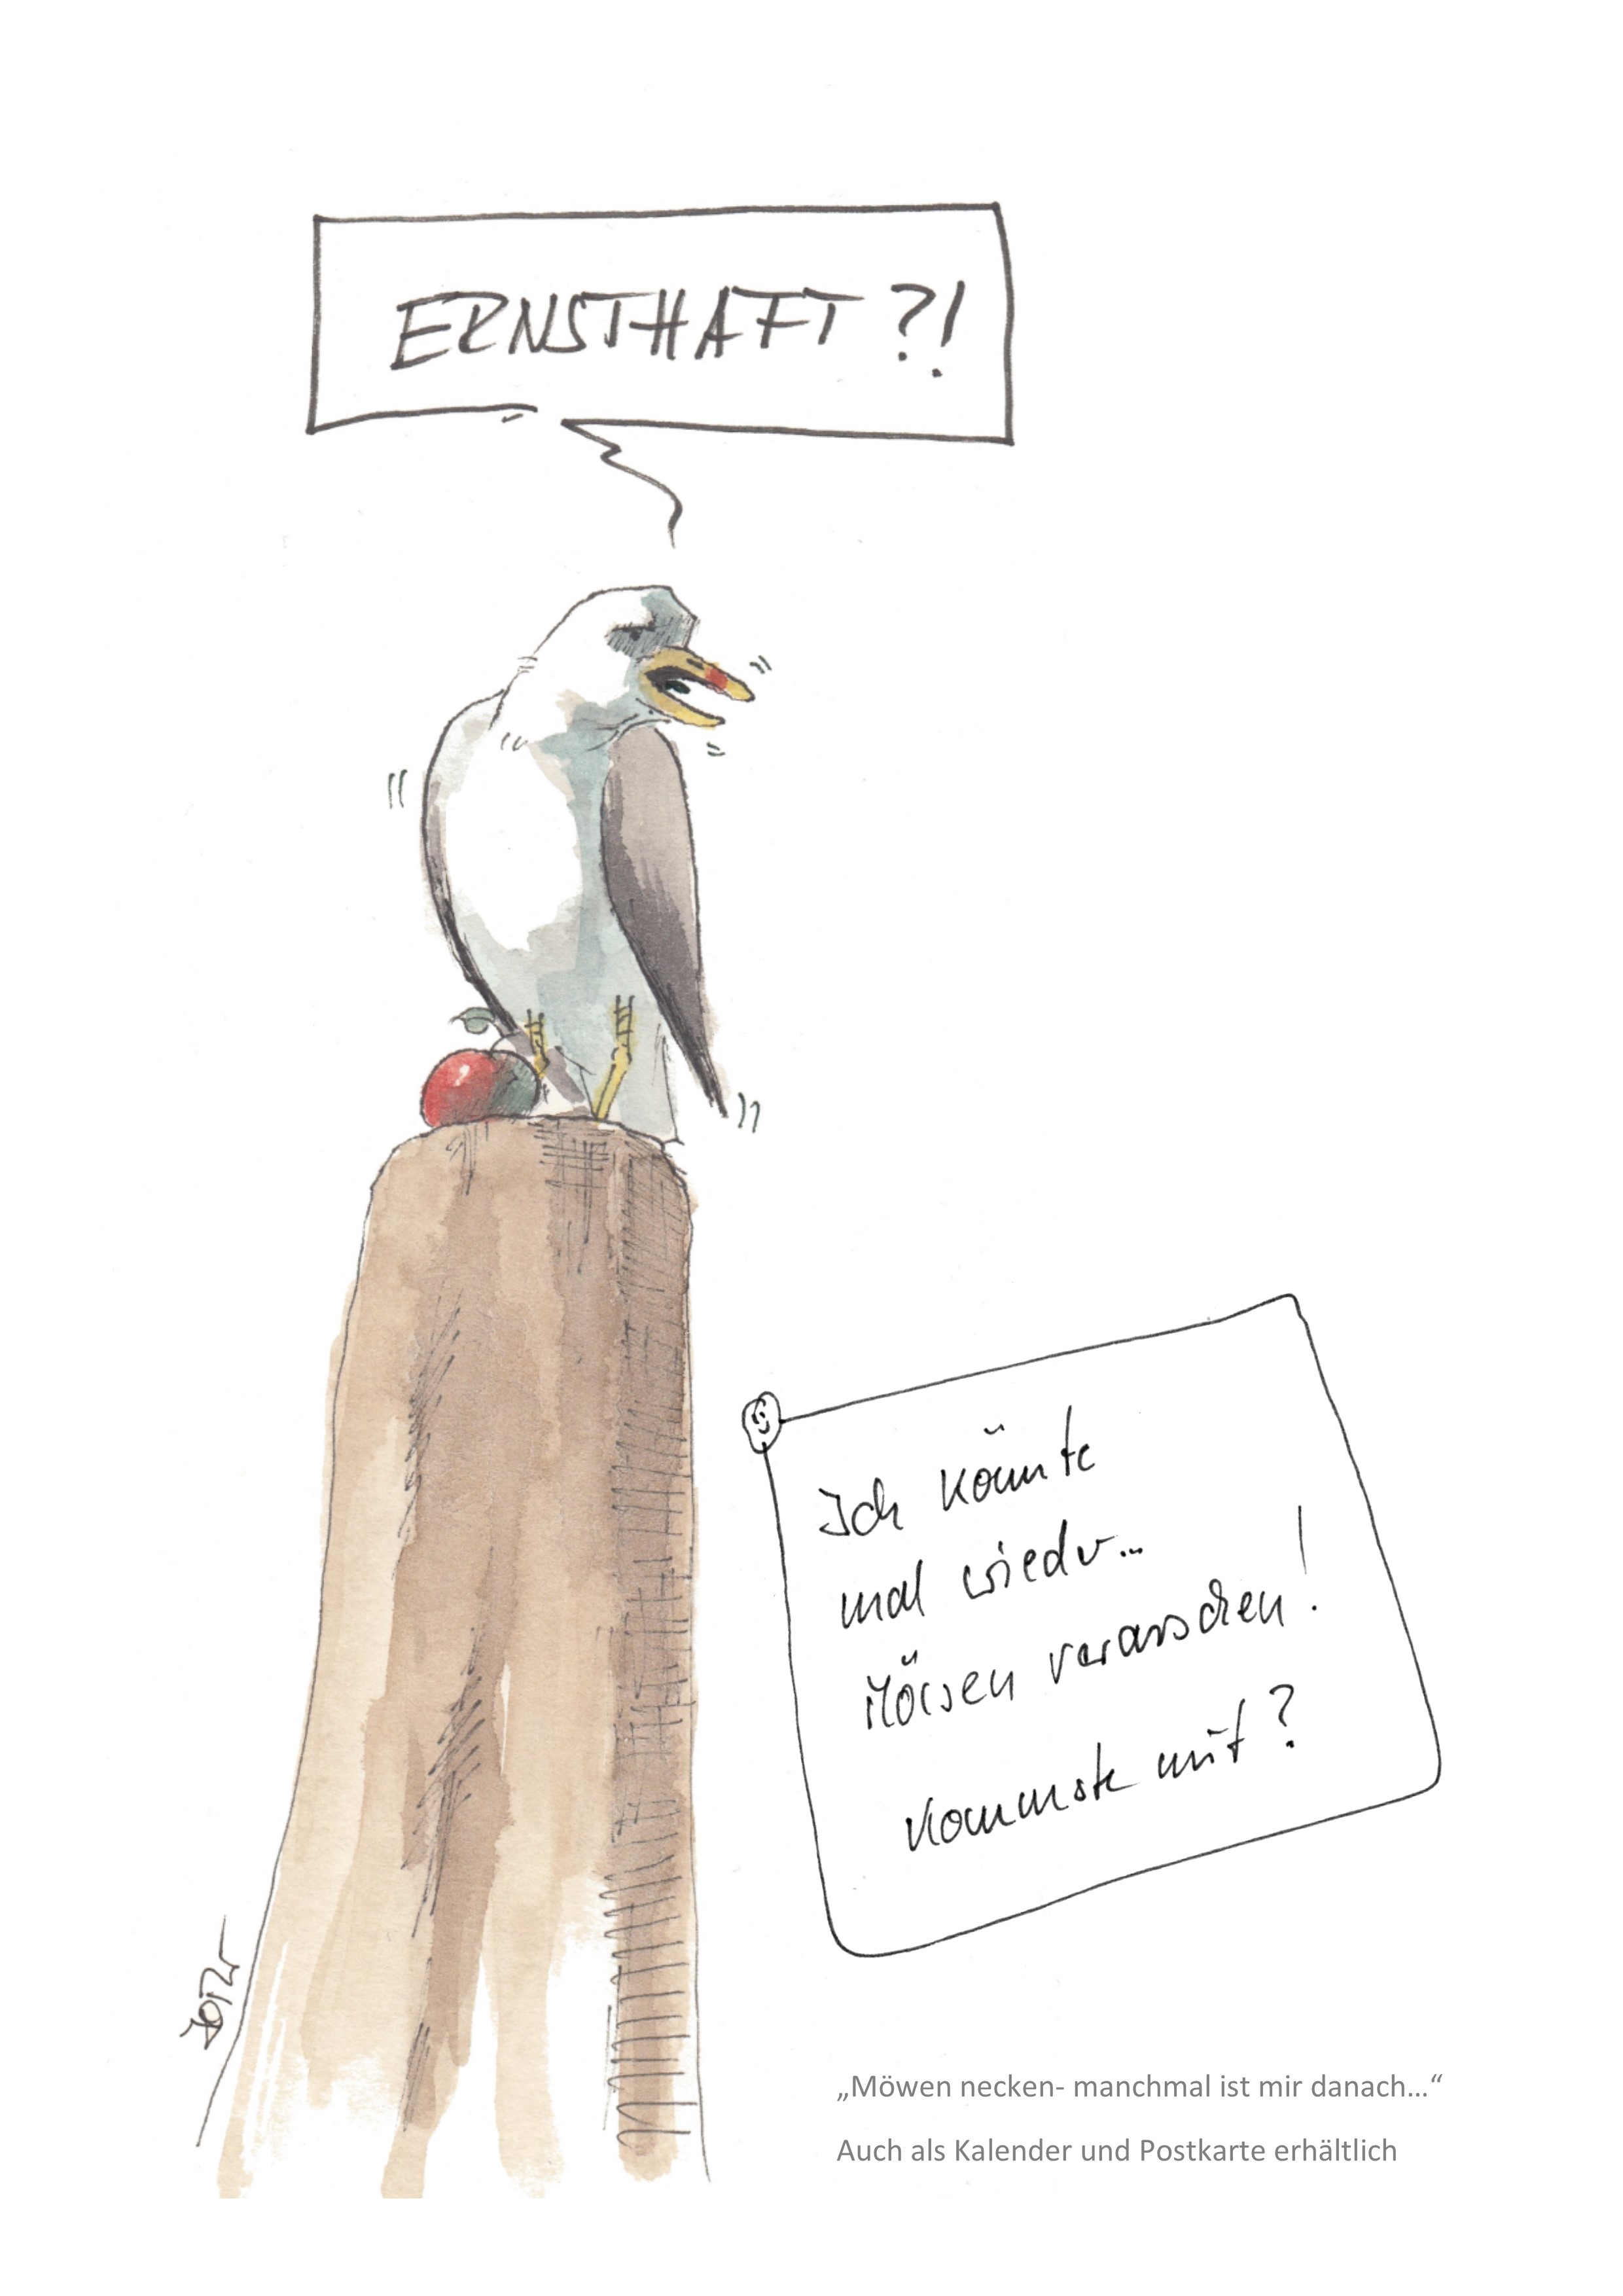 ERNSTHAFT?!
Ich könnte
mal wieder...
Möwen verarschen!
Kommste mit?
„Möwen necken- manchmal ist mir danach...“
Auch als Kalender und Postkarte erhältlich